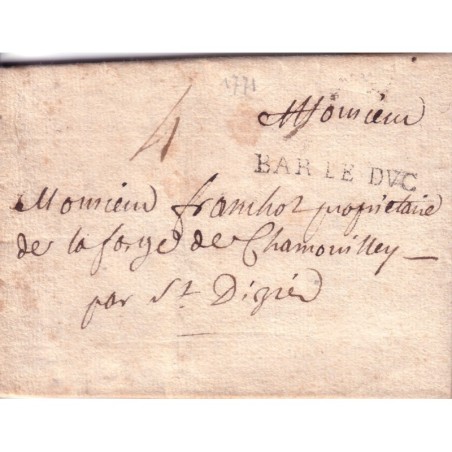 1771
Monsieur
4
BAR LE DVC
Monsieur franchot propriétaire
de la forge de Chamouilley
par St Dizier